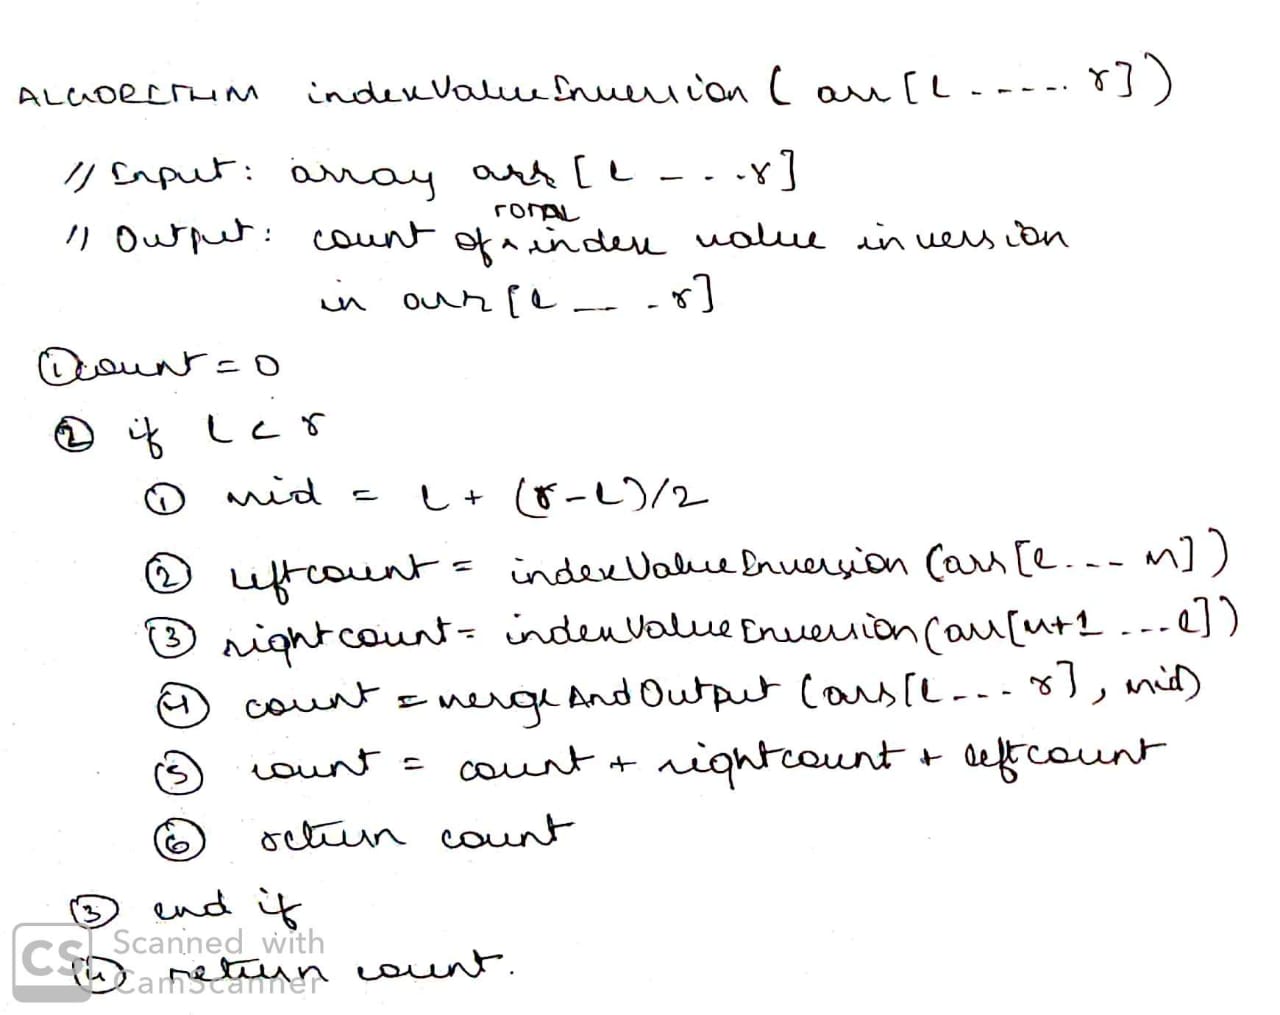 ALGORITHM indexValueInversion ( arr [ l ----- r ] )
// Input: array arr [ l --- r ]
// Output: count of ^ total index value inversion
in arr [ l --- r ]
① count = 0
② if l < r
① mid = l + (r-l)/2
② leftcount = indexValueInversion (arr [l --- m])
③ rightcount = indexValueInversion (arr[m+1 ---l])
④ count = mergeAndOutput (arr[l --- r], mid)
⑤ count = count + rightcount + leftcount
⑥ return count
③ end if
④ return count.
CS Scanned with
CamScanner